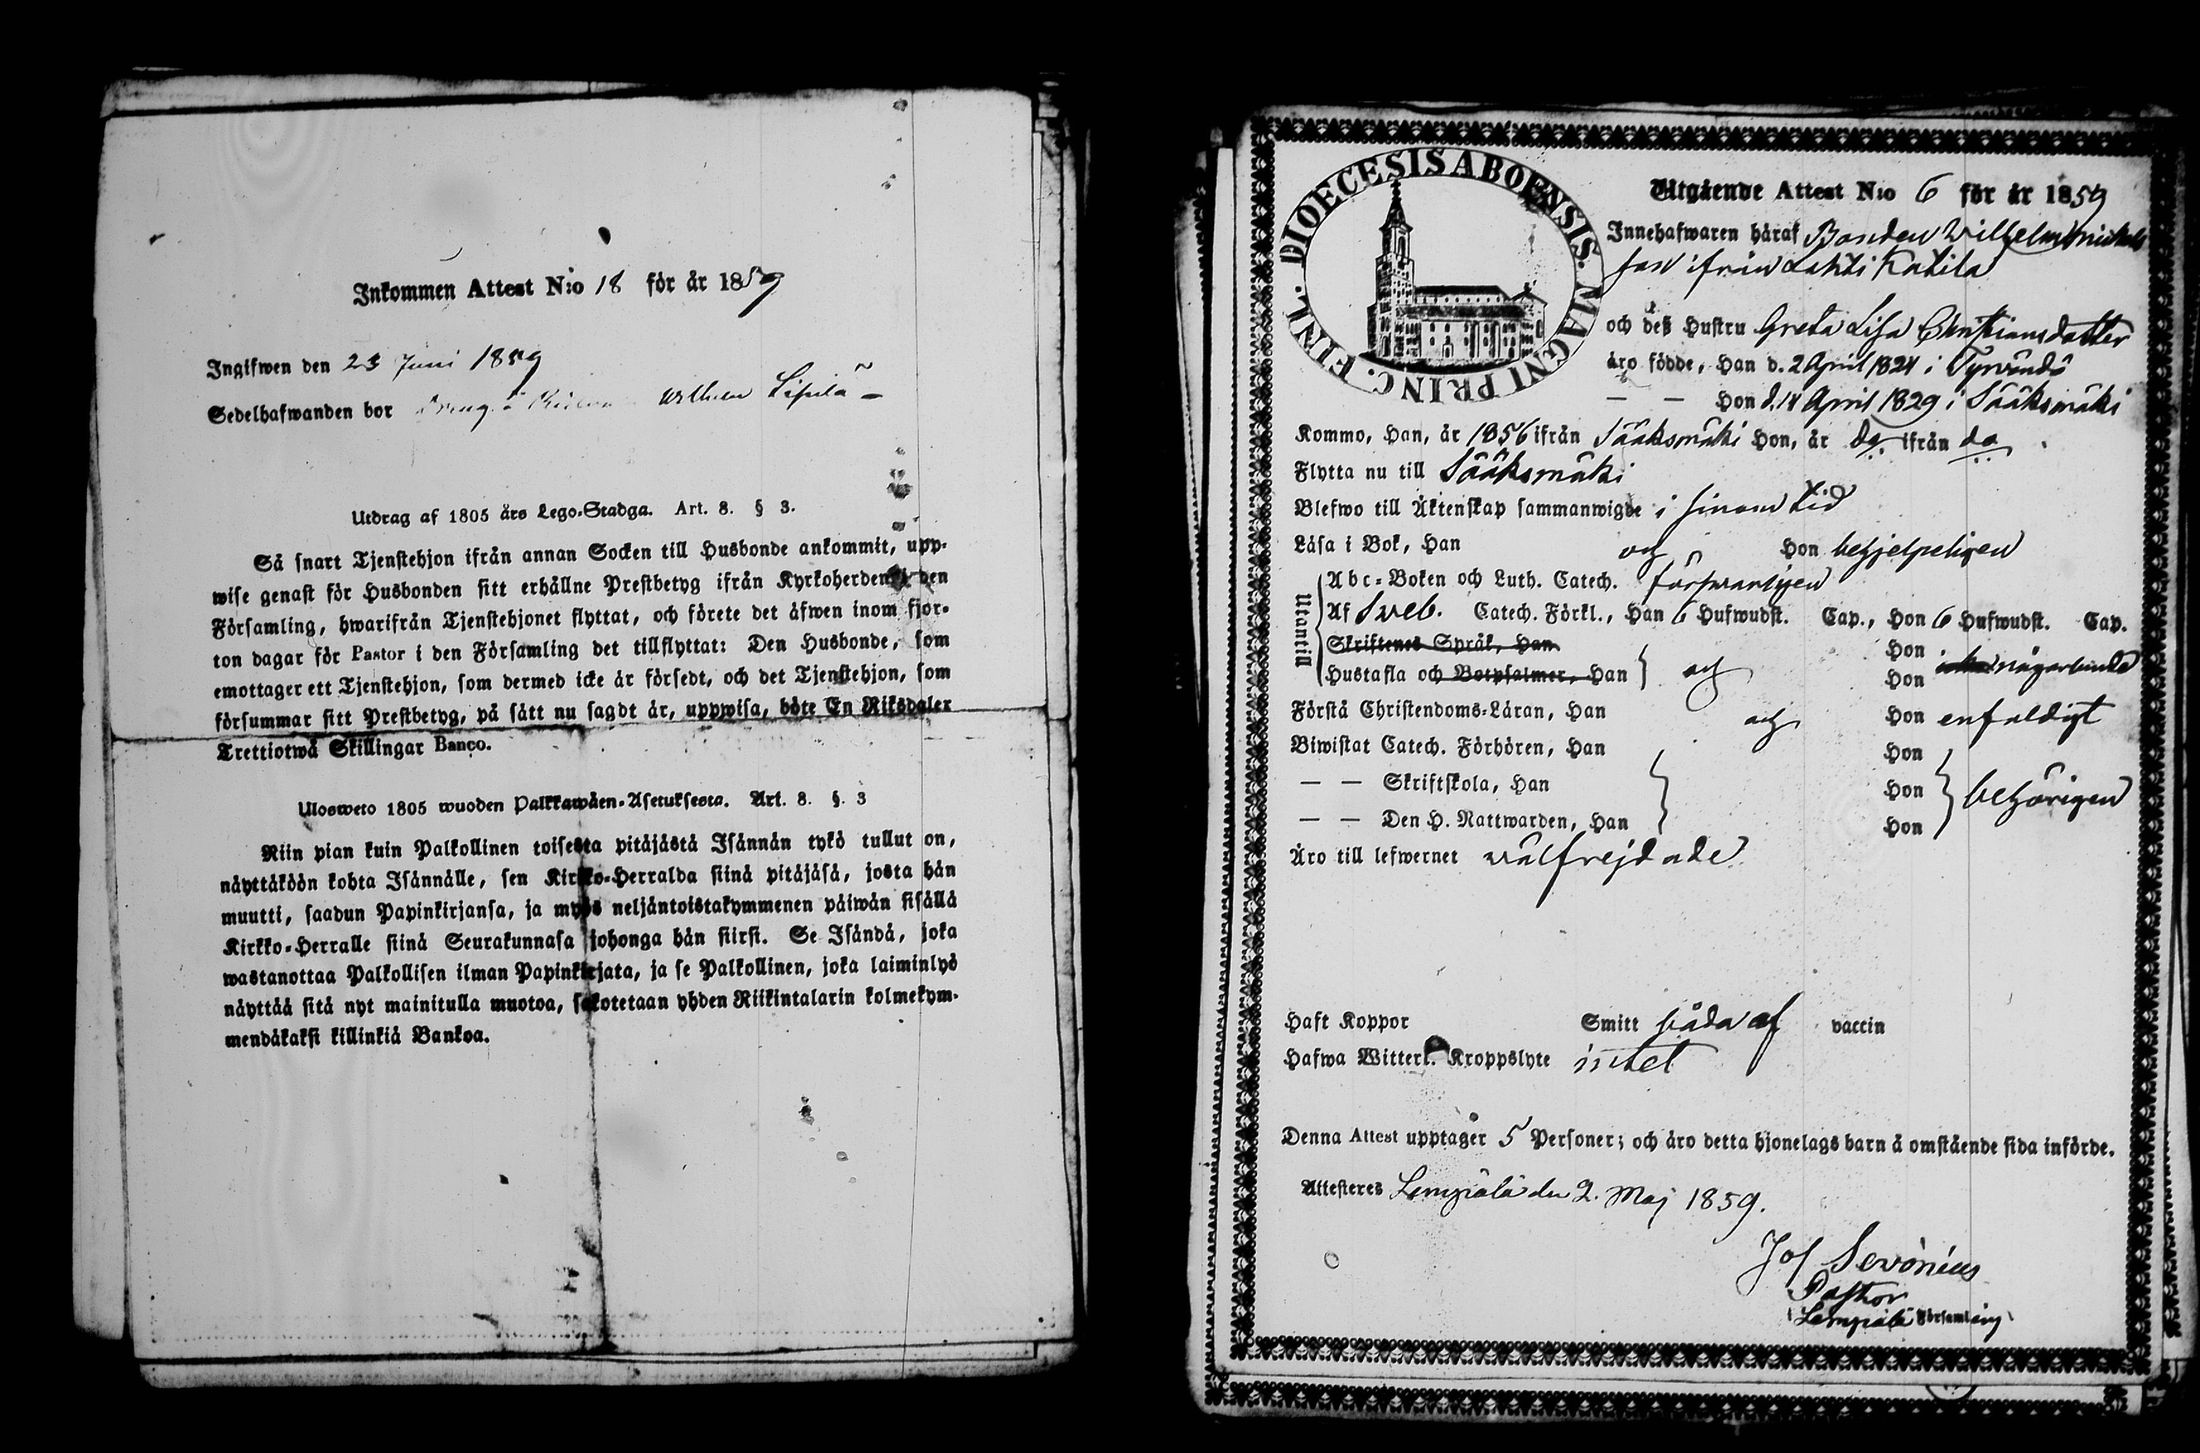 Inkommen Attest N:o 18 för år 1859
Ingifwen den 23 Juni 1859
Sedelhafwanden bor
Utdrag af 1805 års Lego-Stadga. Art. 8. § 3.
Så snart Tjenstehjon ifrån annan Socken till Husbonde ankommit, upp-
wise genast för Husbonden sitt erhållne Prestbetyg ifrån Kyrkoherden i den
Församling, hwarifrån Tjenstehjonet flyttat, och förete det äfwen inom fjor-
ton dagar för Pastor i den Församling det tillflyttat: Den Husbonde, som
emottager ett Tjenstehjon, som dermed icke är försedt, och det Tjenstehjon, som
försummar sitt Prestbetyg, på sätt nu sagdt är, uppwisa, böte En Riksdaler
Trettiotwå Skillingar Banco.
Ulosweto 1805 wuoden Palkkawäen-Asetuksesta. Art. 8. §. 3
Niin pian kuin Palkollinen toisesta pitäjästä Isännän tykö tullut on,
näyttäköön kohta Isännälle, sen Kirkko-Herralda siinä pitäjäsä, josta hän
muutti, saadun Papinkirjansa, ja myös neljäntoistakymmenen päiwän sisällä
Kirkko-Herralle siinä Seurakunnasa johonga hän siirsi. Se Isändä, joka
wastanottaa Palkollisen ilman Papinkirjata, ja se Palkollinen, joka laiminlyö
näyttää sitä nyt mainitulla muotoa, sakotetaan yhden Riikintalarin kolmekym-
mendäkaksi killinkiä Bankoa.
DIOECESIS ABOENSIS. MAGNI PRINC. FINL.
Utgående Attest N:o 6 för år 1859
Innehafwaren häraf Bonden Wilhelm Michels
son ifrån Lahti Katila
och deß Hustru Greta Lisa Christiansdotter
äro födde, Han d. 2 April 1824 i Tyrvändö
— — Hon d. 18 April 1829 i Sääksmäki
Kommo, Han, år 1856 ifrån Sääksmäki Hon, år do ifrån do
Flytta nu till Sääksmäki
Blefwo till Äktenskap sammanwigde i sinom tid
Läsa i Bok, Han och Hon behjelpeligen
Utantill
Abc-Boken och Luth. Catech. försvarligen
Af Sveb. Catech. Förkl., Han 6 Hufwudst. Cap., Hon 6 Hufwudst. Cap.
Skriftenes Språk, Han Hon
Hustafla och Botpsalmer, Han och Hon någorlunda
Förstå Christendoms-Läran, Han och Hon enfaldigt
Biwistat Catech. Förhören, Han Hon
— — Skriftskola, Han Hon behörigen
— — Den H. Nattwarden, Han Hon
Äro till lefwernet wälfrejdade
Haft Koppor Smitt båda af vaccin
Hafwa Witterl. Kroppslyte intet
Denna Attest upptager 5 Personer; och äro detta hjonelags barn å omstående sida införde.
Attesteres Lempälä den 2. Maj 1859.
Jos Sevonius
Pastor
Lempälä Församling